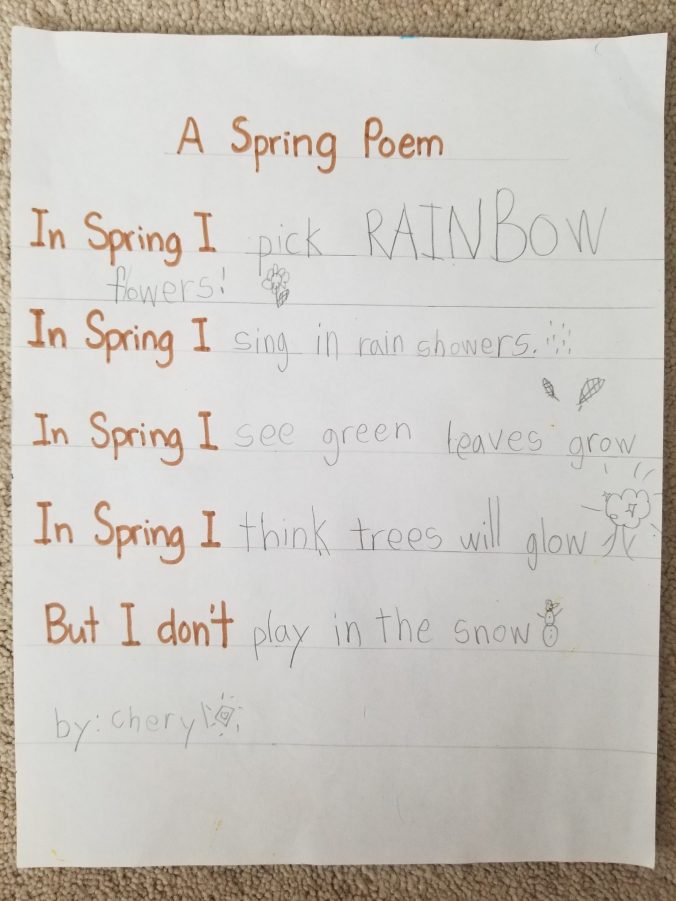 A Spring Poem
In Spring I pick RAINBOW
flowers!
In Spring I sing in rain showers.
In Spring I see green leaves grow
In Spring I think trees will glow
But I don't play in the snow
by: cheryl